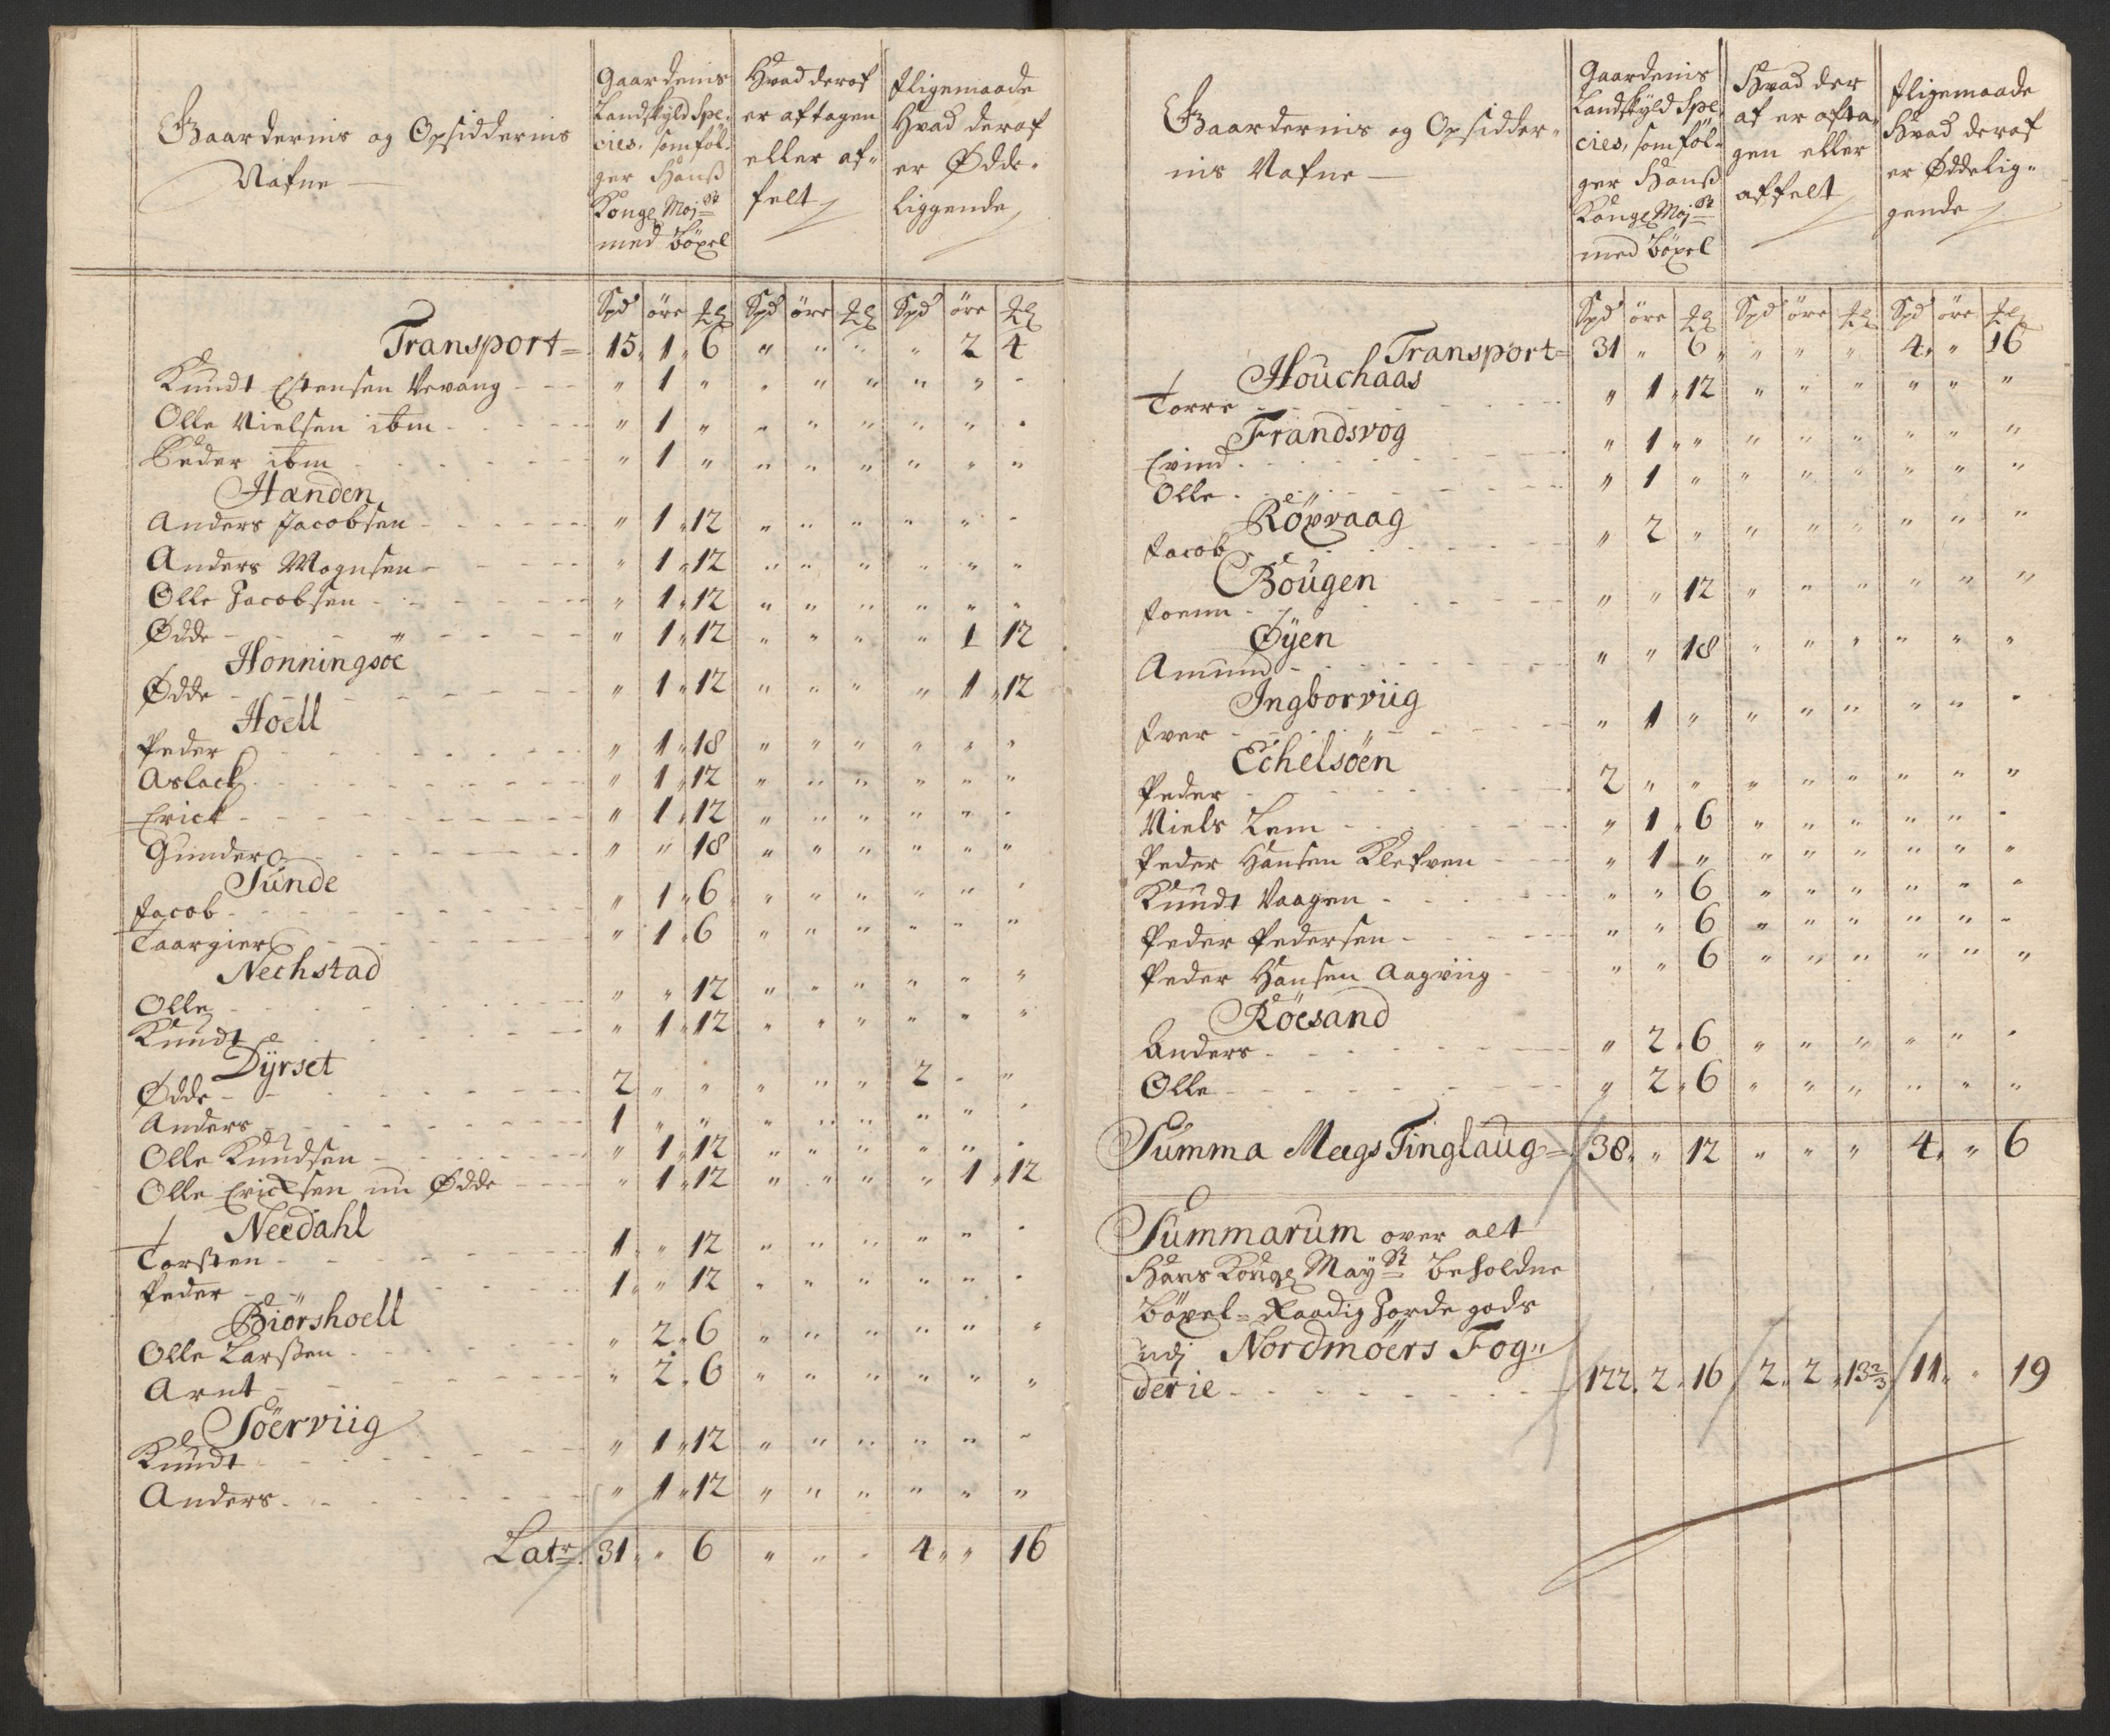 Gaardernis og Opsiddernis
Nafne
Gaardenis
Landskyld Spe,
cies, som föl,
ger Hanß
Konge Maj.st
med böxel
Hvad deraf
er aftagen
eller af,,
felt
Iligemaade
Hvad deraf
er Ødde,
liggende
Spd öre Spd öre Spd öre
Transport= 15, 1 " 6 " " " " 2 4
Knudt Estensen Vevang - - - " 1 " " " " " " "
Olle Nielsen ibm - - - " 1 " " " " " " "
Peder ibm - - - " 1 " " " " " " "
Handen
Anders Jacobsen - - - " 1 " 12 " " " " " "
Anders Mognsen - - - " 1 " 12 " " " " " "
Olle Jacobsen - - - " 1 " 12 " " " " " "
Ødde - - - " 1 " 12 " " " " 1 12
Honningsöe
Ødde - - - " 1 " 12 " " " " 1 " 12
Hoell
Peder - - - " 1 " 18 " " " " " "
Aslack - - - " 1 " 12 " " " " " "
Erick - - - " 1 " 12 " " " " " "
Gunder - - - " " 18 " " " " " "
Sunde
Jacob - - - " 1 " 6 " " " " " "
Taargier - - - " 1 " 6 " " " " " "
Nechstad
Olle - - - " " 12 " " " " " "
Knudt - - - " 1 " 12 " " " " " "
Dyrset
Ødde - - - 2 " " " " " 2 " "
Anders - - - 1 " " " " " " " "
Olle Knudsen - - - " 1 " 12 " " " " " "
Olle Ericksen nu Ødde - - - " 1 " 12 " " " " 1 " 12
Needahl
Torsten - - - 1 " " 12 " " " " " "
Peder - - - 1 " " 12 " " " " " "
Biörshoell
Olle Larßen - - - " 2 " 6 " " " " " "
Arnt - - - " 2 " 6 " " " " " "
Söerviig
Knudt - - - " 1 " 12 " " " " " "
Anders - - - " 1 " 12 " " " " " "
Latr. 31 " " 6 " " " 4 " " 16
Gaardernis og Opsidder,,
nis Nafne
Gaardenis
Landskyld Spe,
cies, som föl,
ger Hanß
Konge Maj.st
med böxel
Hvad der
af er afta,
gen eller
affelt
Iligemaade
Hvad deraf
er Øddelig,,
gende
Spd öre Spd öre Spd öre
Transport= 31 " 6 " " " " 4 " " 16
Houchaas
Torre - - - " 1 " 12 " " " " " "
Frandsvog
Evind - - - " 1 " " " " " " " "
Olle - - - " 1 " " " " " " "
Röxvaag
Jacob - - - " 2 " " " " " " "
Bougen
Joenn - - - " " 12 " " " " " "
Øyen
Amund - - - " " 18 " " " " " "
Ingborviig
Iver - - - " 1 " " " " " " "
Echelsöen
Peder - - - 2 " " " " " " " "
Niels Lem - - - " 1 " 6 " " " " " "
Peder Hansen Klefven - - - " 1 " " " " " " "
Knudt Vaagen - - - " " 6 " " " " " "
Peder Pedersen - - - " " 6 " " " " " "
Peder Hansen Aagviig - - - " " 6 " " " " " "
Röesand
Anders - - - " 2 " 6 " " " " " "
Olle - - - " 2 " 6 " " " " " "
Summa Meegs Tinglaug= 38 " " 12 " " " 4 " " 6
Summarum over alt
Hans Konge May.st beholdne
böxel= Raadig Jorde gods
udj Nordmöers Fog,,
derie - - - 122. 2 " 16 2 " 2 " 13 2/3 11 " " 19